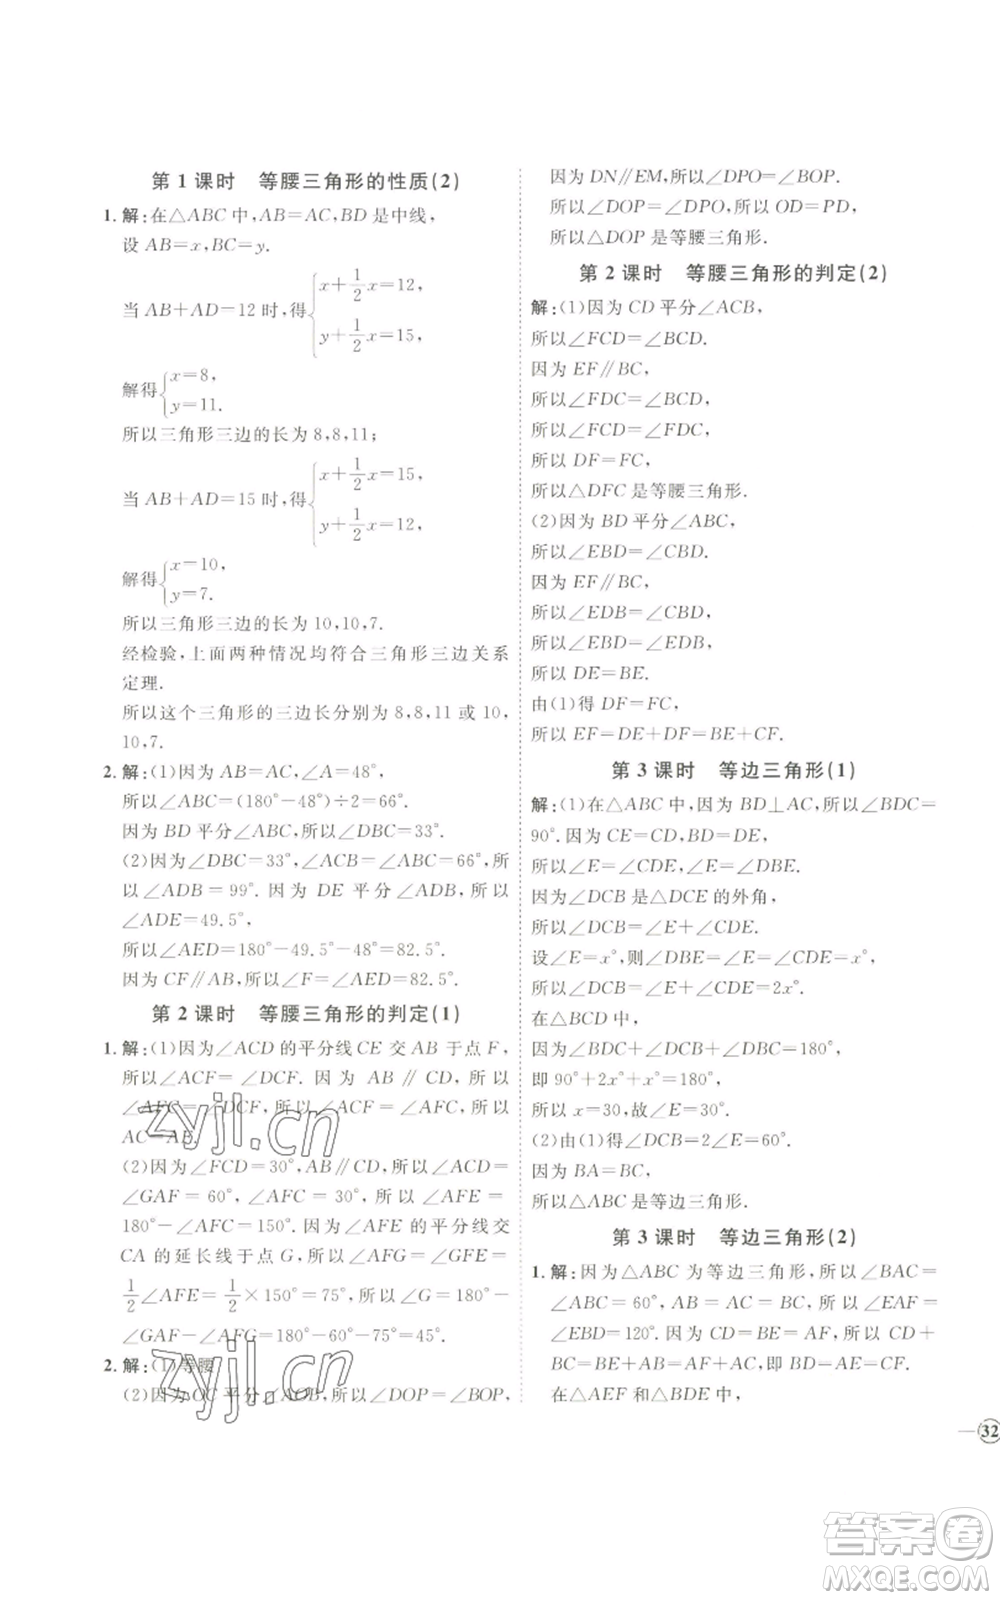 第1课时 等腰三角形的性质(2)
1.解:在△ABC中,AB=AC,BD是中线,
设AB=x,BC=y.
当AB+AD=12时,得{x+1/2x=12,
y+1/2x=15,
解得{x=8,
y=11.
所以三角形三边的长为8,8,11;
当AB+AD=15时,得{x+1/2x=15,
y+1/2x=12,
解得{x=10,
y=7.
所以三角形三边的长为10,10,7.
经检验,上面两种情况均符合三角形三边关系
定理.
所以这个三角形的三边长分别为8,8,11或10,
10,7.
2.解:(1)因为AB=AC,∠A=48°,
所以∠ABC=(180°-48°)÷2=66°.
因为BD平分∠ABC,所以∠DBC=33°.
(2)因为∠DBC=33°,∠ACB=∠ABC=66°,所
以∠ADB=99°.因为DE平分∠ADB,所以
∠ADE=49.5°,
所以∠AED=180°-49.5°-48°=82.5°.
因为CF∥AB,所以∠F=∠AED=82.5°.
第2课时 等腰三角形的判定(1)
1.解:(1)因为∠ACD的平分线CE交AB于点F,
所以∠ACF=∠DCF.因为AB∥CD,所以
∠AFC=∠DCF,所以∠ACF=∠AFC,所以
AC=AF.
(2)因为∠FCD=30°,AB∥CD,所以∠ACD=
∠GAF=60°,∠AFC=30°,所以∠AFE=
180°-∠AFC=150°.因为∠AFE的平分线交
CA的延长线于点G,所以∠AFG=∠GFE=
1/2∠AFE=1/2×150°=75°,所以∠G=180°-
∠GAF-∠AFG=180°-60°-75°=45°.
2.解:(1)等腰
(2)因为OC平分∠AOB,所以∠DOP=∠BOP,
因为DN∥EM,所以∠DPO=∠BOP.
所以∠DOP=∠DPO,所以OD=PD,
所以△DOP是等腰三角形.
第2课时 等腰三角形的判定(2)
解:(1)因为CD平分∠ACB,
所以∠FCD=∠BCD.
因为EF∥BC,
所以∠FDC=∠BCD,
所以∠FCD=∠FDC,
所以DF=FC,
所以△DFC是等腰三角形.
(2)因为BD平分∠ABC,
所以∠EBD=∠CBD.
因为EF∥BC,
所以∠EDB=∠CBD,
所以∠EBD=∠EDB,
所以DE=BE.
由(1)得DF=FC,
所以EF=DE+DF=BE+CF.
第3课时 等边三角形(1)
解:(1)在△ABC中,因为BD⊥AC,所以∠BDC=
90°.因为CE=CD,BD=DE,
所以∠E=∠CDE,∠E=∠DBE.
因为∠DCB是△DCE的外角,
所以∠DCB=∠E+∠CDE.
设∠E=x°,则∠DBE=∠E=∠CDE=x°,
所以∠DCB=∠E+∠CDE=2x°.
在△BCD中,
因为∠BDC+∠DCB+∠DBC=180°,
即90°+2x°+x°=180°,
所以x=30,故∠E=30°.
(2)由(1)得∠DCB=2∠E=60°.
因为BA=BC,
所以△ABC是等边三角形.
第3课时 等边三角形(2)
1.解:因为△ABC为等边三角形,所以∠BAC=
∠ABC=60°,AB=AC=BC,所以∠EAF=
∠EBD=120°.因为CD=BE=AF,所以CD+
BC=BE+AB=AF+AC,即BD=AE=CF.
在△AEF和△BDE中,
— 32
zyjl.cn
zyjl.cn
答案卷
MXQE.COM